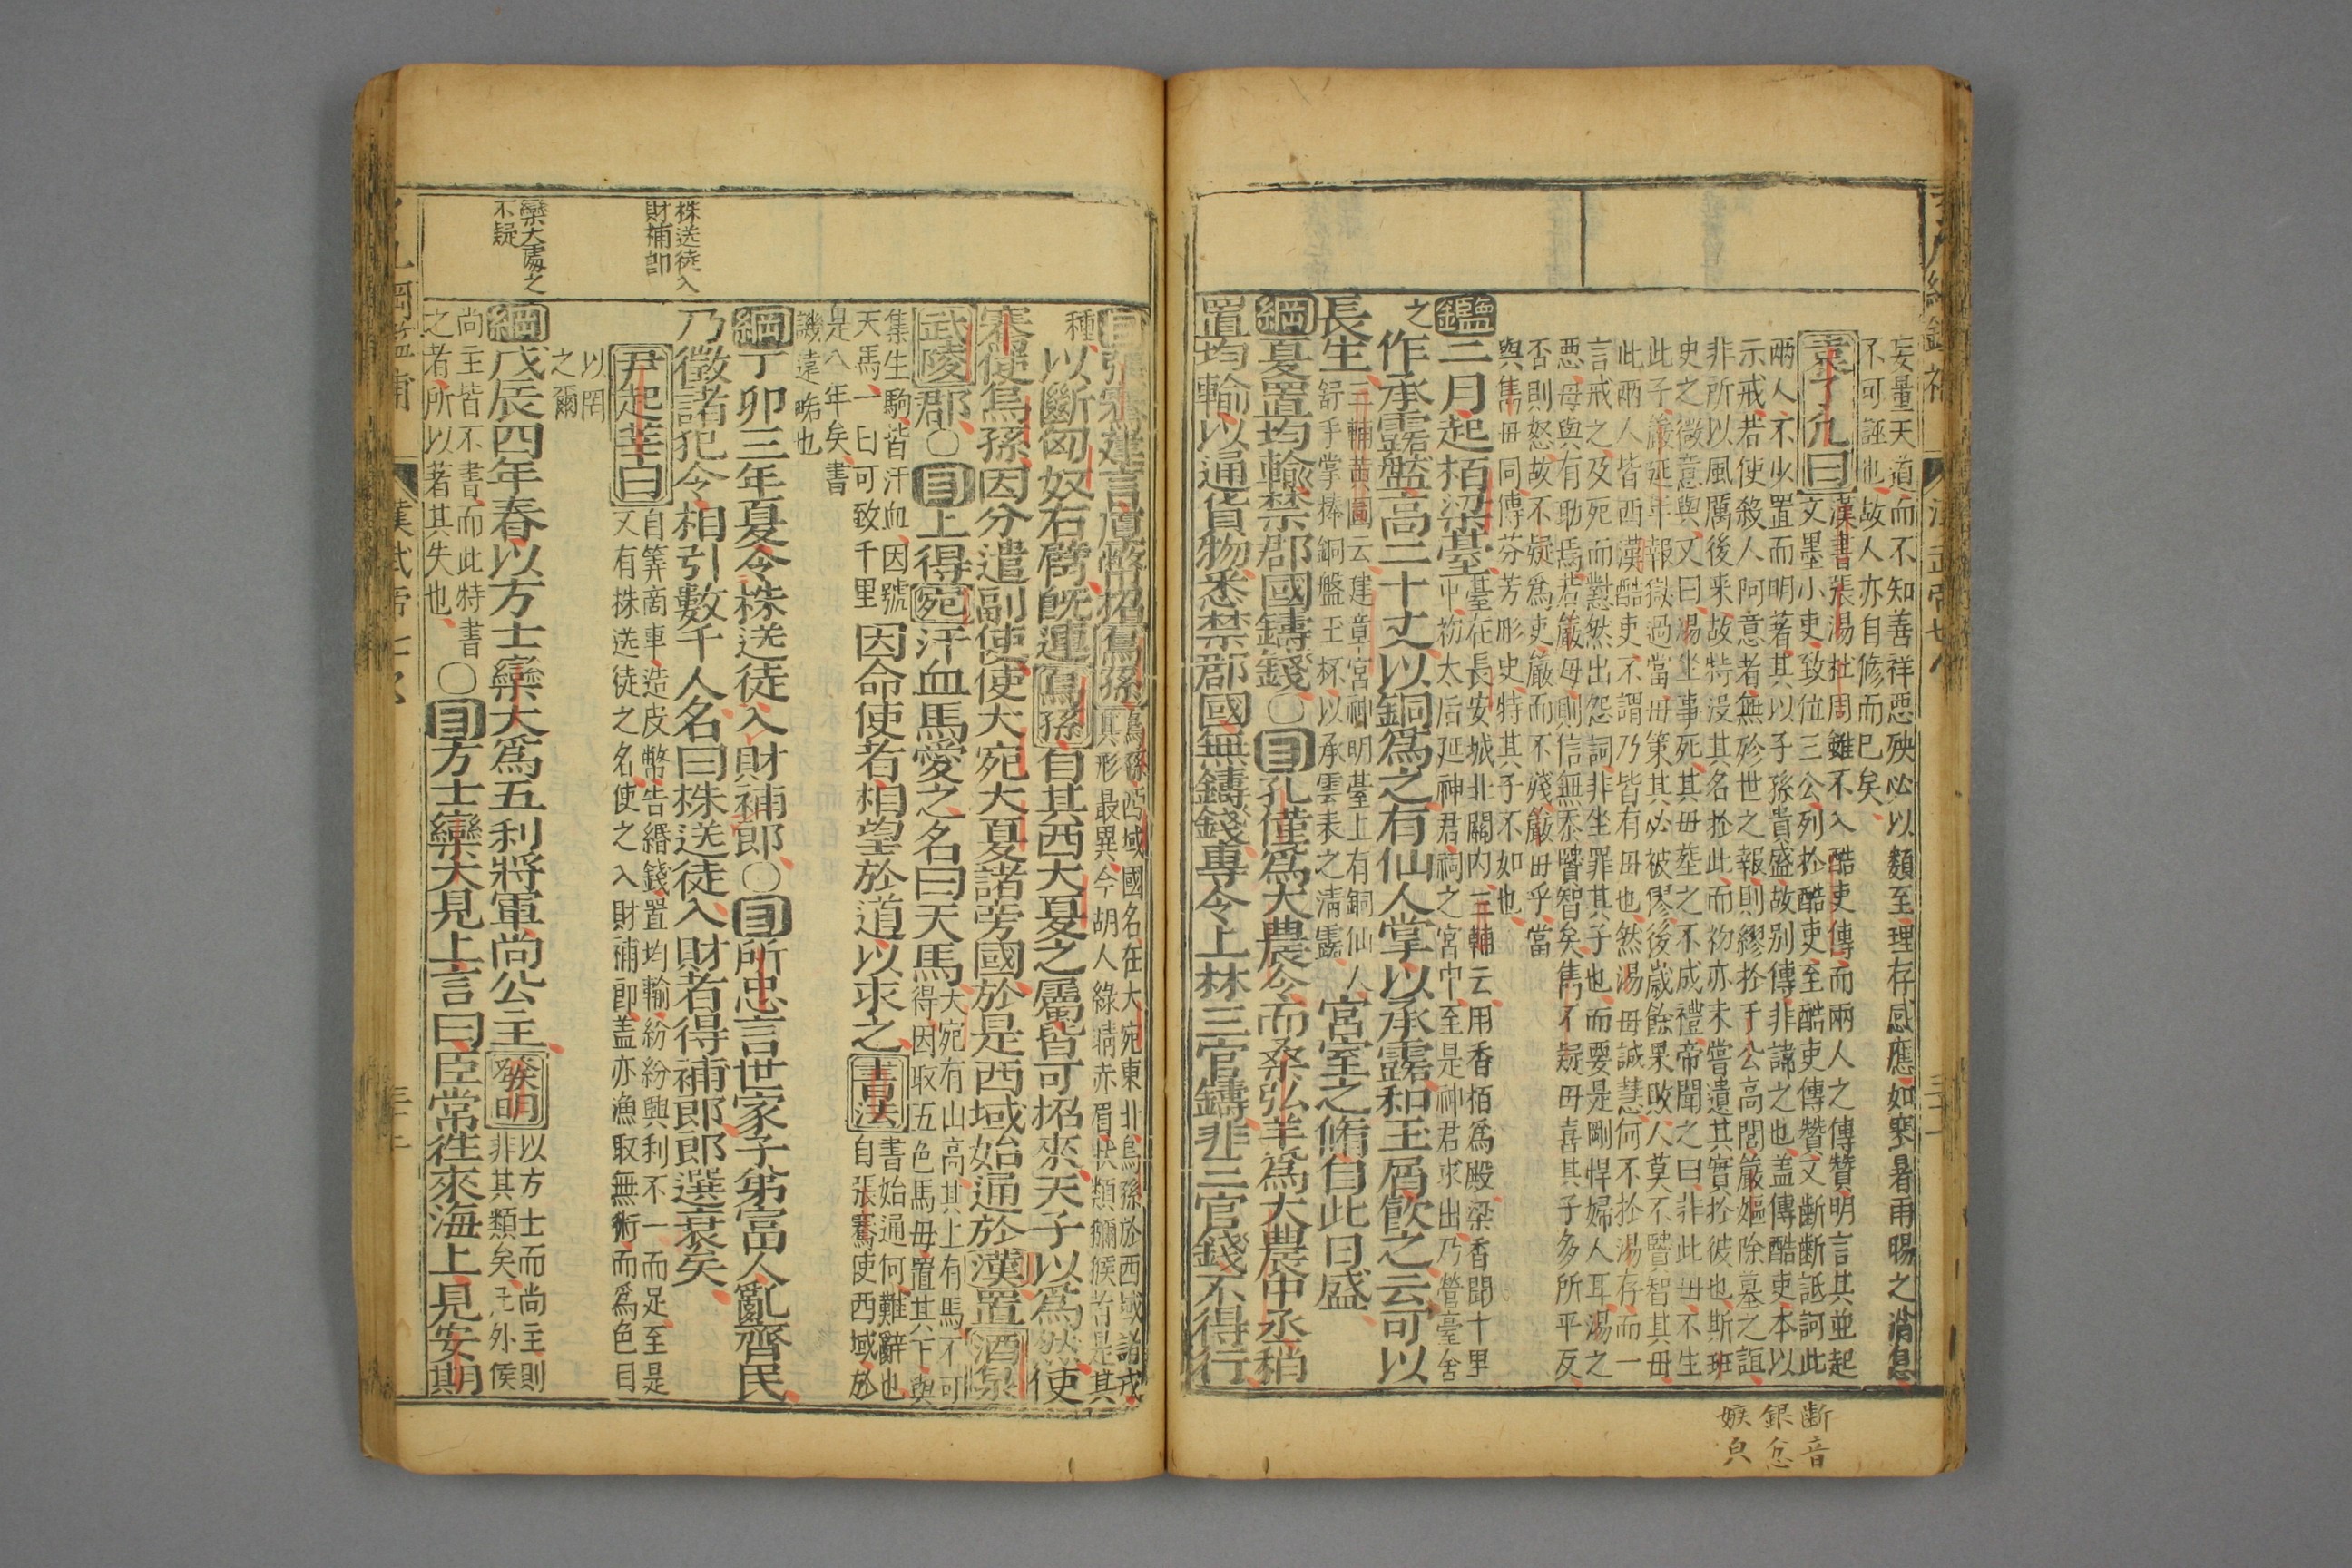 妄量天道而不知善祥惡殃必以類至理存感應如寒暑雨暘之消息
不可誣也故人亦自修而已矣
袁了凡曰漢書張湯杜周雖不入酷吏傳而兩人之傳贊明言其並起
文墨小吏致位三公列於酷吏至酷吏傳贊又斷斷詆訶此
兩人不少置而明著其以子孫貴盛故別傳非諱之也盖傳酷吏本以
示戒若使殺人阿意者無於世之報則繆於于公高閎嚴嫗除墓之誼
非所以風厲後來故特没其名於此而初亦未嘗遺其實於彼也斯班
史之微意與又曰湯坐事死其毋葬之不成禮帝聞之曰非此毋不生
此子嚴延年報嶽過當毋策其必被僇後歲餘果敗人莫不賢智其毋
此兩人皆西漢酷吏不謂乃皆有毋也然湯毋誠慧何不於湯存而一
言戒之及死而懟然出怨詞非坐罪其子也而要是剛悍婦人耳湯之
惡毋與有助焉若嚴毋則信無忝賢智矣雋不疑毋喜其子多所平反
否則怒故不疑爲吏嚴而不殘嚴毋乎當
與雋毋同傳芬芳彤史特其子不如也
鑑二月起栢梁臺臺在長安城北闕内三輔云用香栢爲殿梁香聞十里
中初太后延神君祠之宮中至是神君求出乃營臺舍
之作承露盤高二十丈以銅爲之有仙人掌以承露和玉屑飲之云可以
長生三輔黃圖云建章宮神明臺上有銅仙人
舒手掌捧銅盤玉杯以承雲表之清露宮室之脩自此日盛
綱夏置均輸禁郡國鑄錢○目孔僅爲大農令而桑弘羊爲大農中丞稍
置均輸以通貨物悉禁郡國無鑄錢專令上林三官鑄非三官錢不得行
斷音
銀忿
嫉㒵
目張騫建言厚幣招烏孫烏孫西域國名在大宛東北烏孫於西域諸戎
其形最異今胡人綠精赤眉狀類獼猴者是其
種以斷匈奴右臂旣連烏孫自其西大夏之屬皆可招來天子以爲然使
騫使烏孫因分遣副使使大宛大夏諸旁國於是西域始通於漢置酒泉
武陵郡○目上得宛汗血馬愛之名曰天馬大宛有山高其上有馬不可
得因取五色馬毋置其下與
集生駒皆汗血因號
天馬一曰可致千里因命使者相望於道以求之書法書始通何難辭也
自張騫使西域於
是八年矣書
譏遠略也
綱丁卯三年夏令株送徒入財補郎○目所忠言世家子第富人亂齊民
乃徵諸犯令相引數千人名曰株送徒入財者得補郎郎選衰矣
尹起莘曰自筭商車造皮幣告緡錢置均輸紛紛興利不一而足至是
又有株送徒之名使之入財補郎盖亦漁取無術而爲色目
以罔
之爾
綱戊辰四年春以方士欒大爲五利將軍尚公主發明以方士而尚主則
非其類矣凡外侯
尚主皆不書而此特書
之者所以著其失也○目方士欒大見上言曰臣常往來海上見安期
株送徒入
財補郎
欒大處之
不疑